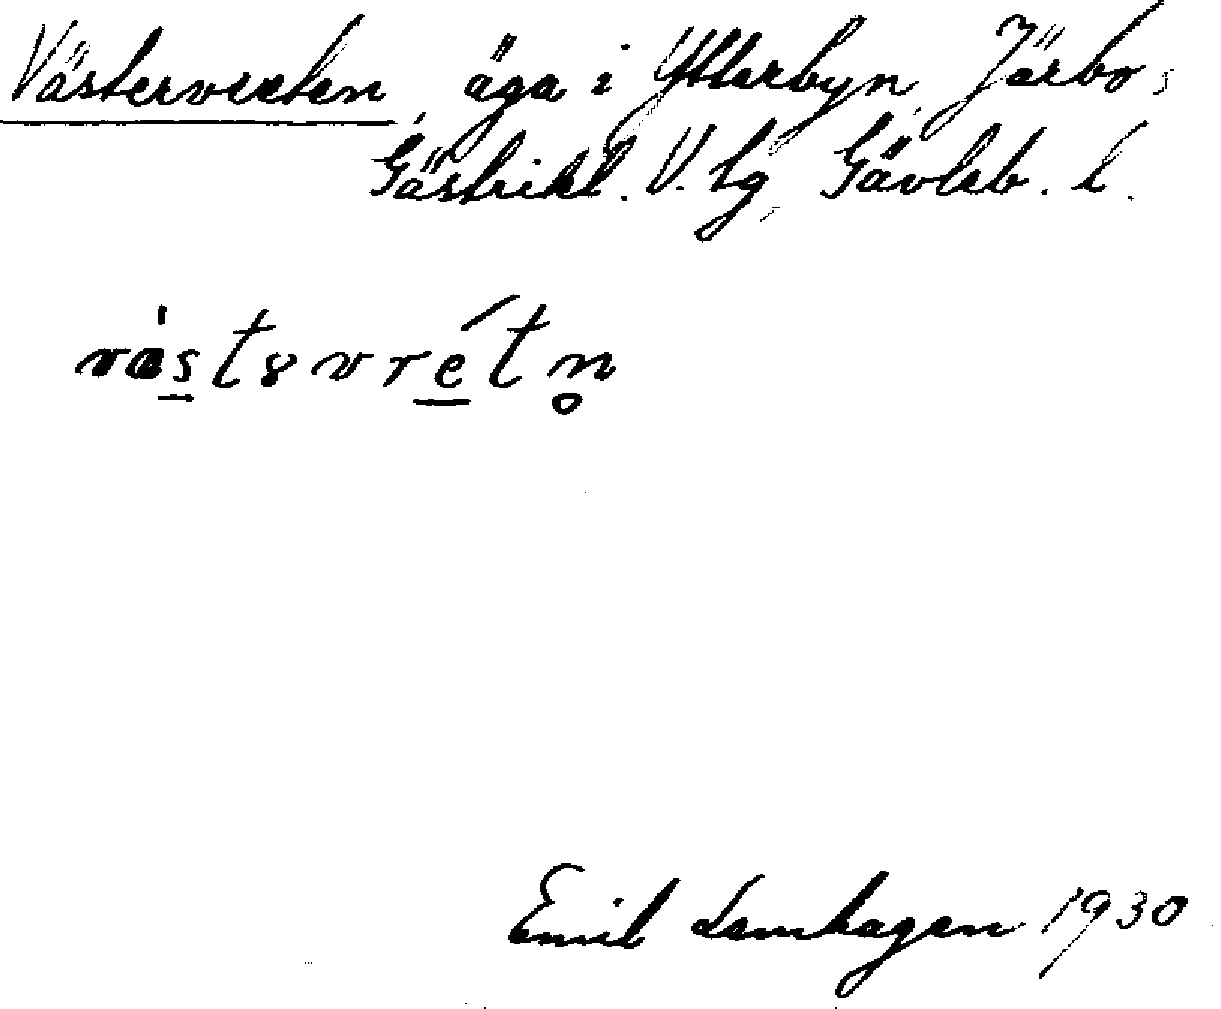 Västervreten, äga i Ytterbyn, Järbo s
Gästrikl. V. tg, Gävleb. l.
Emil Lamhagen 1930